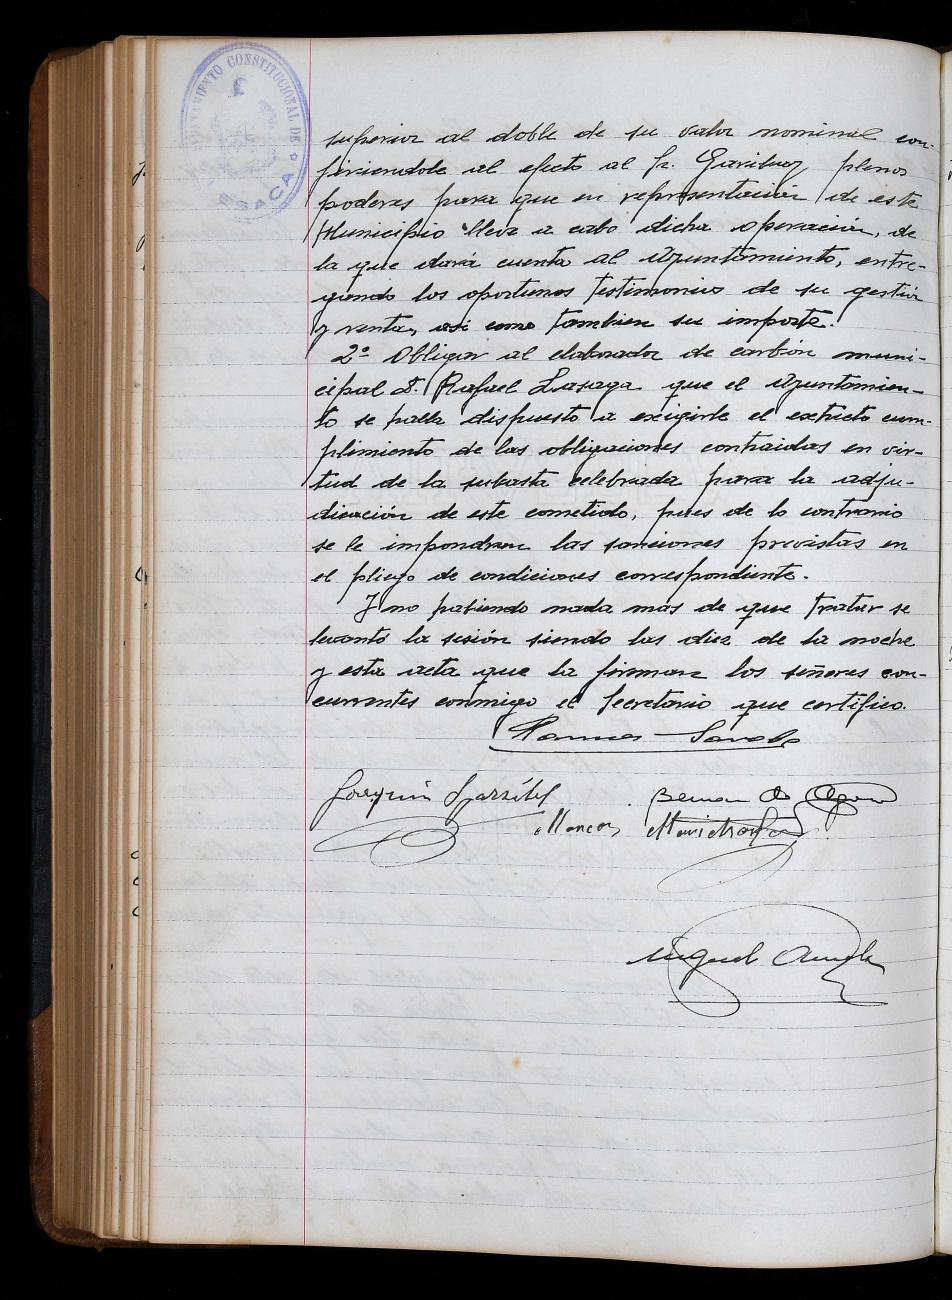 AYUNTAMIENTO CONSTITUCIONAL DE
LESACA
superior al doble de su valor nominal con-
firiendole al efecto al Sr. Garibay plenos
poderes para que en representación de este
Municipio lleve a cabo dicha operación, de
la que dará cuenta al Ayuntamiento, entre-
gando los oportunos testimonios de su gestión
y venta, asi como tambien su importe.
2º Obligar al elaborador de carbón muni-
cipal D. Rafael Lasaga que el Ayuntamien-
to se halla dispuesto a exigirle el extricto cum-
plimiento de las obligaciones contraidas en vir-
tud de la subasta celebrada para la adju-
dicación de este cometido, pues de lo contrario
se le impondran las sanciones previstas en
el pliego de condiciones correspondiente.
Y no habiendo nada mas de que tratar se
levantó la sesión siendo las diez de la noche
y esta acta que la firman los señores con-
currentes conmigo el Secretario que certifico.
Joaquin
Marcos
Miguel